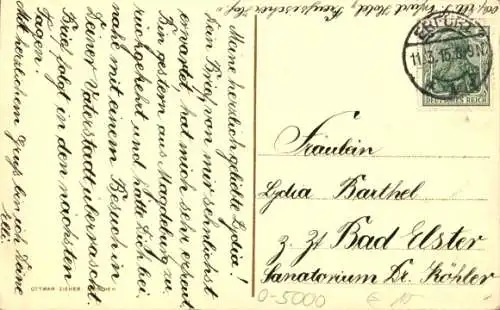 Meine herzlich geliebte Lydia!
Dein Brief, von mir sehnlichst
erwartet, hat mich sehr erfreut.
Bin gestern aus Magdeburg zu-
rückgekehrt und hätte Dich bei-
nahe mit einem Besuch in
Deiner Vaterstadt überrascht.
Brief folgt in den nächsten
Tagen.
Mit herzlichem Gruß bin ich Deine
Elli.
Erfurt Hotel
ERFURT
11.5.15.8-9N
DEUTSCHES REICH
Fräulein
Lydia Barthel
z. Zt. Bad Elster
Sanatorium Dr. Köhler
OTTMAR ZIEHER, MÜNCHEN
0-5000